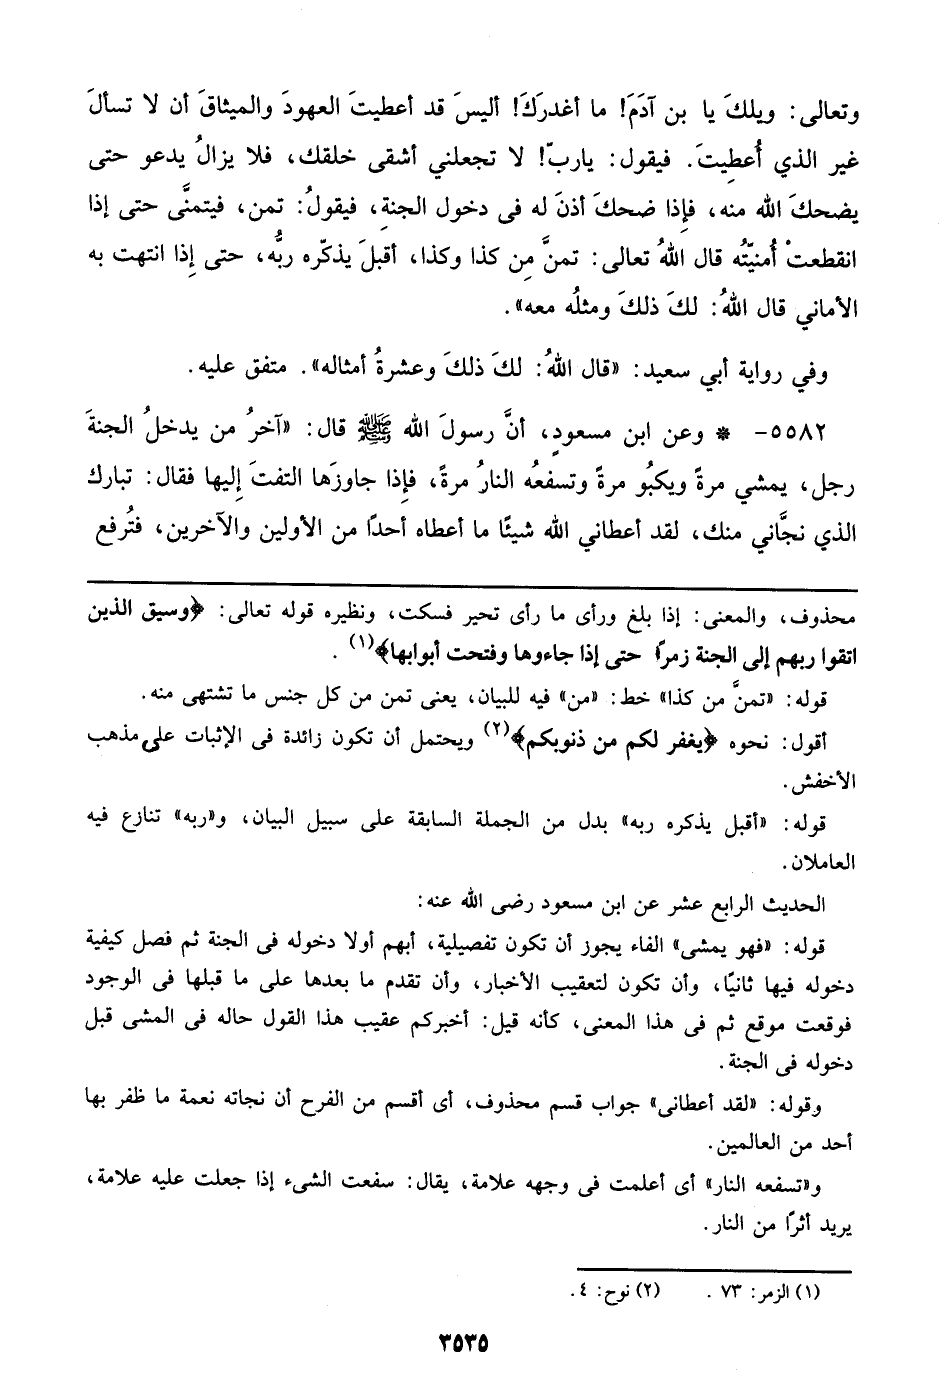 وتعالى: ويلكَ يا بن آدَمَ! ما أغدركَ! أليسَ قد أعطيتَ العهودَ والميثاقَ أن لا تسألَ
غير الذي أُعطِيتَ. فيقول: ياربّ! لا تجعلني أشقى خلقك، فلا يزالُ يدعو حتى
يضحكَ الله منه، فإذا ضحكَ أذنَ له فى دخول الجنةِ، فيقولُ: تمن، فيتمنَّى حتى إذا
انقطعتْ أُمنيّتُه قال اللهُ تعالى: تمنَّ مِن كذا وكذا، أقبلَ يذكّره ربُّه، حتى إذا انتهت به
الأماني قال اللهُ: لكَ ذلكَ ومثلُه معه».
وفي رواية أبي سعيد: «قال اللهُ: لكَ ذلكَ وعشرةُ أمثاله». متفق عليه.
٥٥٨٢- * وعن ابن مسعودٍ، أنَّ رسولَ الله ﷺ قال: «آخرُ من يدخلُ الجنةَ
رجل، يمشي مرةً ويكبُو مرةً وتسفعُه النارُ مرةً، فإذا جاوزَها التفتَ إليها فقال: تبارك
الذي نجَّاني منك، لقد أعطاني الله شيئًا ما أعطاه أحدًا من الأولين والآخرين، فتُرفع
محذوف، والمعنى: إذا بلغ ورأى ما رأى تحير فسكت، ونظيره قوله تعالى: ﴿وسيق الذين
اتقوا ربهم إلى الجنة زمرًا حتى إذا جاءوها وفتحت أبوابها﴾(١) .
قوله: «تمنَّ من كذا» خط: «من» فيه للبيان، يعنى تمن من كل جنس ما تشتهى منه.
أقول: نحوه ﴿يغفر لكم من ذنوبكم﴾(٢) ويحتمل أن تكون زائدة فى الإثبات على مذهب
الأخفش.
قوله: «أقبل يذكره ربه» بدل من الجملة السابقة على سبيل البيان، و«ربه» تنازع فيه
العاملان.
الحديث الرابع عشر عن ابن مسعود رضى الله عنه:
قوله: «فهو يمشى» الفاء يجوز أن تكون تفصيلية، أبهم أولا دخوله فى الجنة ثم فصل كيفية
دخوله فيها ثانيًا، وأن تكون لتعقيب الأخبار، وأن تقدم ما بعدها على ما قبلها فى الوجود
فوقعت موقع ثم فى هذا المعنى، كأنه قيل: أخبركم عقيب هذا القول حاله فى المشى قبل
دخوله فى الجنة.
وقوله: «لقد أعطانى» جواب قسم محذوف، أى أقسم من الفرح أن نجاته نعمة ما ظفر بها
أحد من العالمين.
و«تسفعه النار» أى أعلمت فى وجهه علامة، يقال: سفعت الشىء إذا جعلت عليه علامة،
يريد أثرًا من النار.
(١) الزمر: ٧٣ . (٢) نوح: ٤ .
٣٥٣٥